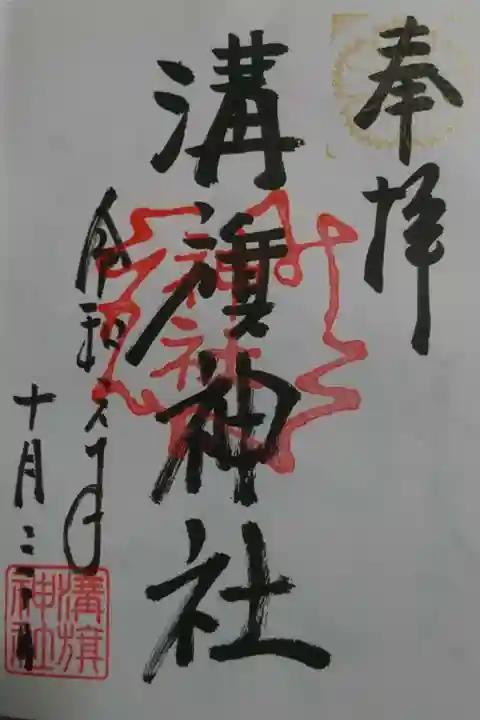 奉拝
溝旗神社
令和六年
十月二
溝旗
神社